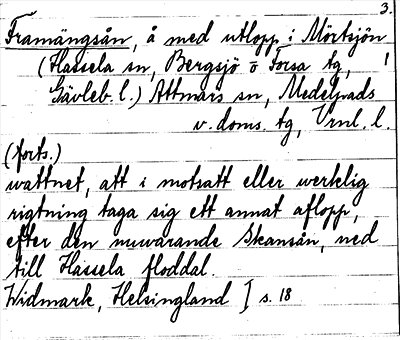 3.
Framängsån, å med utlopp i Mörtsjön
(Hassela sn, Bergsjö o Forsa tg,
Gävleb. l.) Attmars sn, Medelpads
v. doms. tg, Vrnl. l.
(forts.)
wattnet, att i motsatt eller werklig
rigtning taga sig ett annat aflopp,
efter den nuwarande Skansån, ned
till Hassela floddal.
Widmark, Helsingland I s. 18